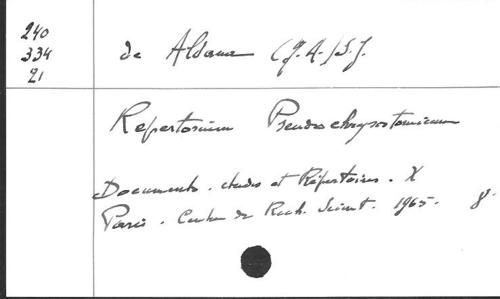 240
334
21
de Aldama (J.A.) S.J.
Repertorium Pseudochrysostomicum
Documents, études et Répertoires. X
Paris. Centre de Rech. Scient. 1965. 8°